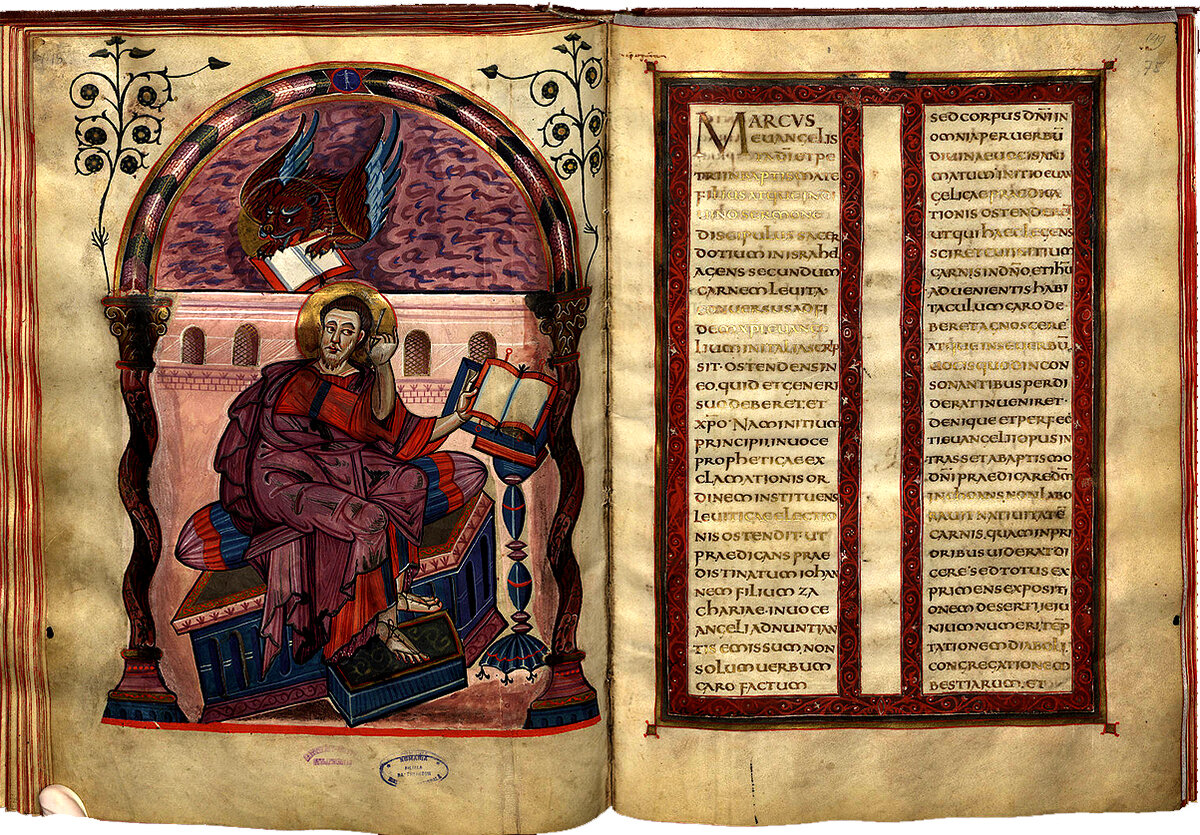 MARCUS
EUANGELIS
ET PE
TRI IN BAPTISMATE
FILIUS ATQ IN DI
UINO SERMONE
DISCIPULUS SACER
DOTIUM IN ISRAHEL
AGENS SECUNDUM
CARNEM LEUITA
CONUERSUS AD FI
DEM XPI EUAN
LIUM IN ITALIA SCRIP
SIT· OSTENDENS IN
EO, QUID ET GENERI
SUO DEBERET, ET
XPO· NAM INITIUM
PRINCIPII, IN UOCE
PROPHETICAE EX
CLAMATIONIS OR
DINEM INSTITUENS
LEUITICAE ELECTIO
NIS OSTENDIT· UT
PRAEDICANS PRAE
DISTINATUM IOHAN
NEM FILIUM ZA
CHARIAE· IN UOCE
ANGELI ADNUNTIAN
TIS EMISSUM, NON
SOLUM UERBUM
CARO FACTUM
SED CORPUS DNI IN
OMNIA PER UERBU
DIUINAE UOCIS ANI
MATUM INITIO EUAN
GELICAE PRAEDICA
TIONIS OSTENDERET
UT QUI HAEC LEGENS
SCIRET CUI INITIUM
CARNIS IN DNO ET IHU
ADUENIENTIS HABI
TACULUM CARO DE·
BERET AGNOSCERE·
ATQUE IN SE UERBU,
QUOD IN CON
SONANTIBUS PERDI
DERAT INUENIRET·
DENIQUE ET PERFEC
TI EUANGELII OPUS IN
TRASSET A BAPTISMO
DNI PRAEDICARE DM
INCHOANS NON LABO
RAUIT NATIUITATE
CARNIS, QUAM IN PRI
ORIBUS UIDERAT DI
CERE· SED TOTUS EX
PRIMENS EXPOSITI
ONEM DESERTI IEIU
NIUM NUMERI, TEP
TATIONEM DIABOLI,
CONGREGATIONEM
BESTIARUM, ET
75
ROMANIA